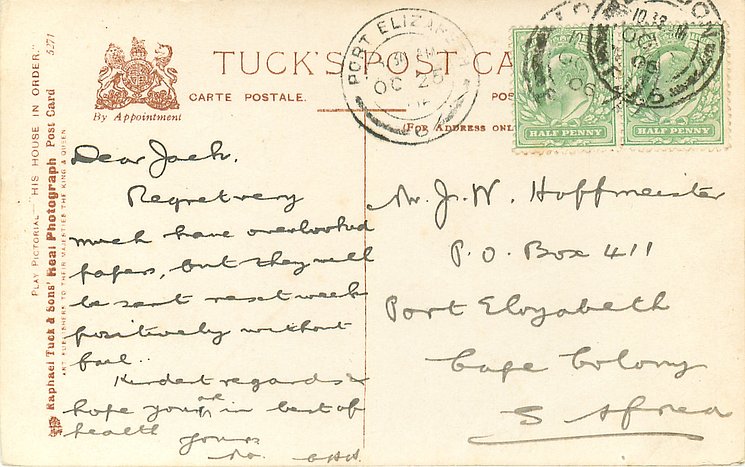 TUCK'S POST CA
CARTE POSTALE.
POS
(FOR ADDRESS ONL
By Appointment
PLAY PICTORIAL—"HIS HOUSE IN ORDER."
Raphael Tuck & Sons' Real Photograph Post Card 5271
ART PUBLISHERS TO THEIR MAJESTIES THE KING & QUEEN.
PORT ELIZABETH
OC 25
HALF PENNY
HALF PENNY
Dear Jack.
Regret very
much have overlooked
papers, but they will
be sent next week
positively without
fail..
Kindest regards &
hope your are in best of
health
Yours
Mr. J. W. Hoffmeister
P. O. Box 411
Port Elizabeth
Cape Colony
S Africa